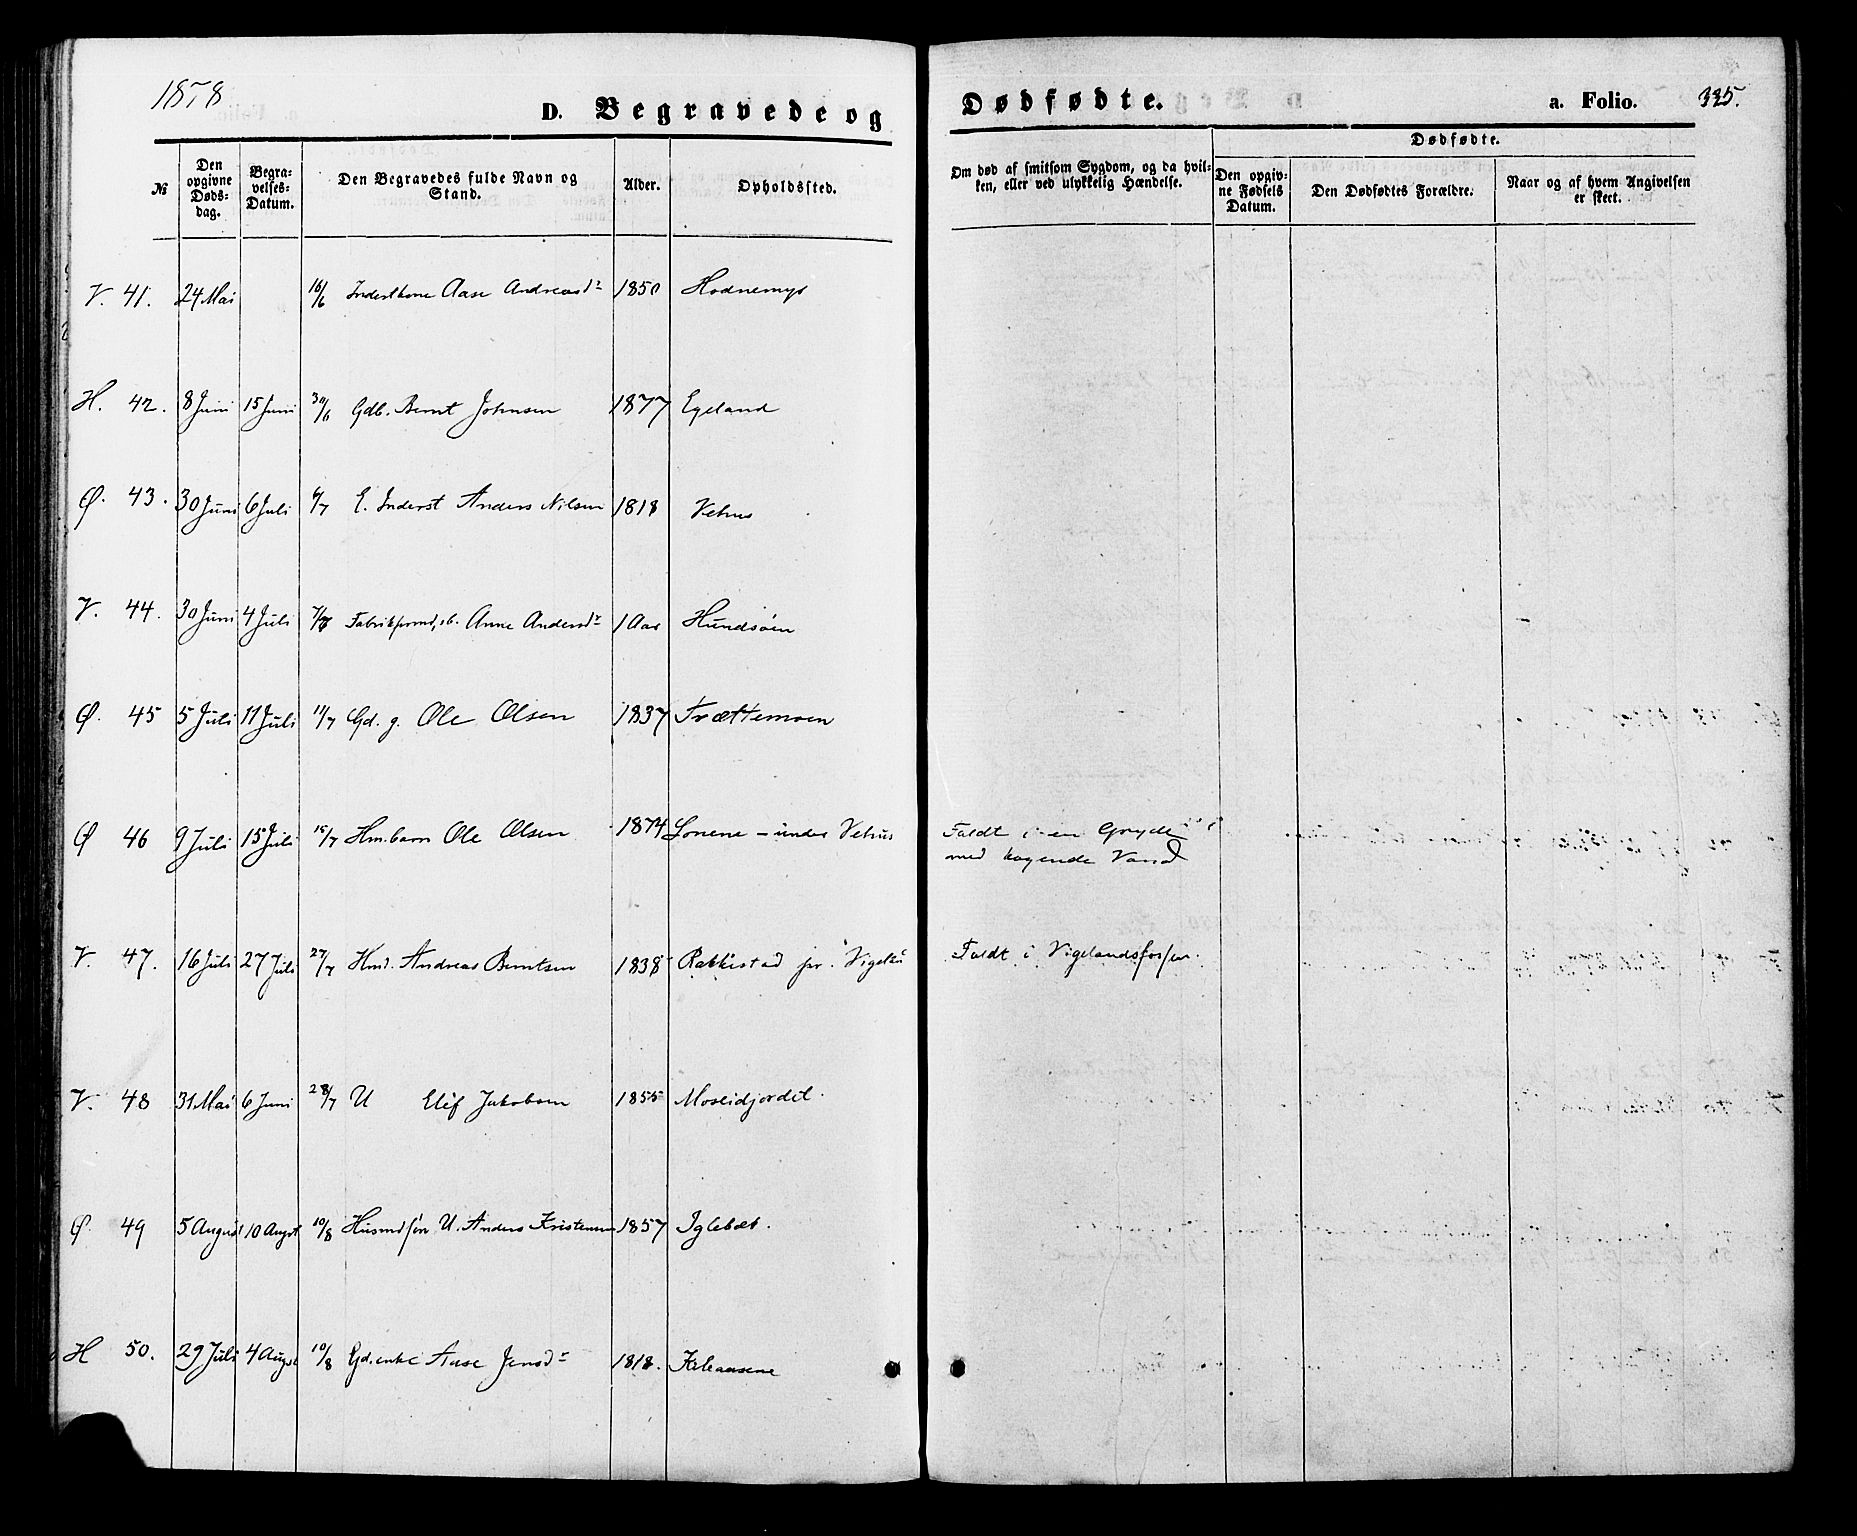 1878
D. Begravede og Dødfødte. a. Folio. 325.
№ Den opgivne Døds-dag. Begra-velses-Datum. Den Begravedes fulde Navn og Stand. Alder. Opholdssted. Om død af smitsom Sygdom, og da hvil-ken, eller ved ulykkelig Hændelse. Dødfødte. Den opgiv-ne Fødsels Datum. Den Dødfødtes Forældre. Naar og af hvem Angivelsen er skeet.
V. 41. 24 Mai 16/6 Inderstkone Aase Andreasdr 1850 Hodnemyr
H. 42. 8 Juni 15 Juni 30/6 Gdb. Bernt Johnsen 1877 Egeland
Ø. 43. 30 Juni 6 Juli 6/7 E. Inderst Anders Nilsen 1818 Vehus
V. 44. 30 Juni 4 Juli 7/7 Anne Andersdr 1 Aar Hundsøen
Ø. 45 5 Juli 11 Juli 11/7 Gd. g. Ole Olsen 1837 Trættemoen
Ø 46 9 Juli 15 Juli 15/7 Hm.barn Ole Olsen 1874 Lonene – under Vehus Faldt i en Gryde
med kogende Vand
V. 47. 16 Juli 27 Juli 27/7 Hmd. Andreas Berntsen 1838 Rakkestad Faldt i Vigelandsfossen.
V. 48 31 Mai 6 Juni 28/7 U Elef Jakobsen 1855 Moseidjordet.
Ø. 49 5 August 10 Augst 10/8 Husmdsøn U. Anders Kristensen 1857 Iglebæk.
H 50. 29 Juli 4 Augst 10/8 Gd.enke Aase Jensdr 1818. Kileaasene